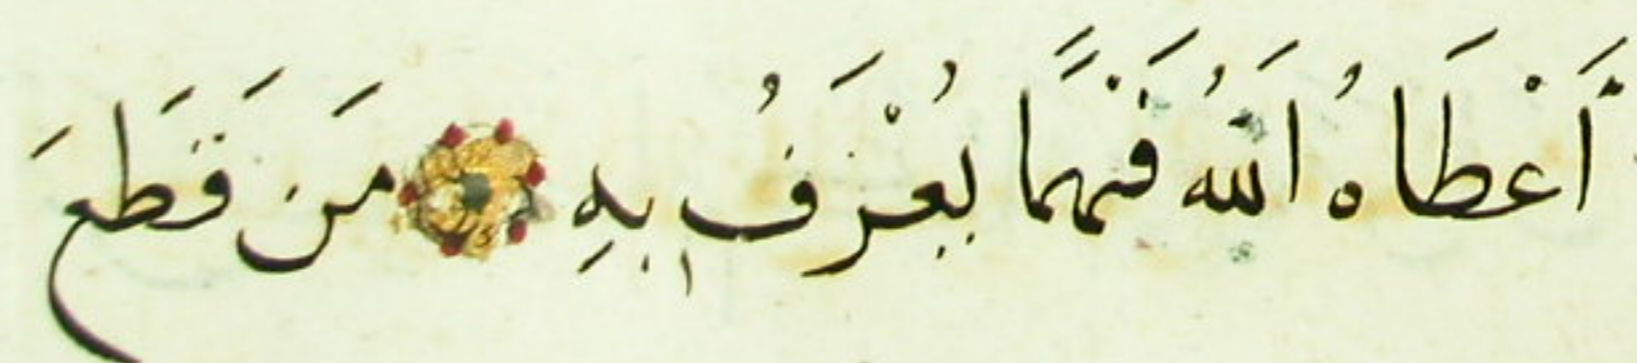 أَعْطَاهُ اللهُ فَهْمًا يُعْرَفُ بِهِ مَنْ قَطَعَ